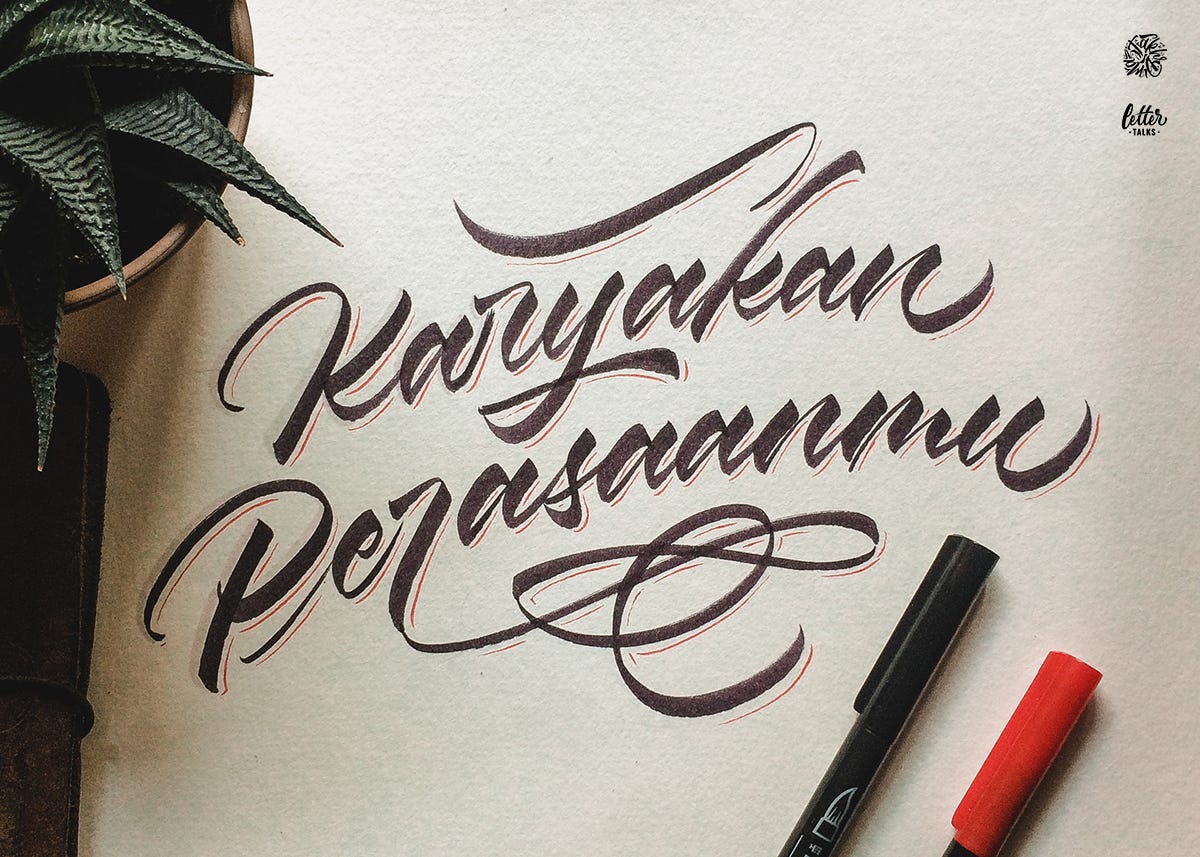 Karyakan
Perasaanmu
letter
• TALKS •